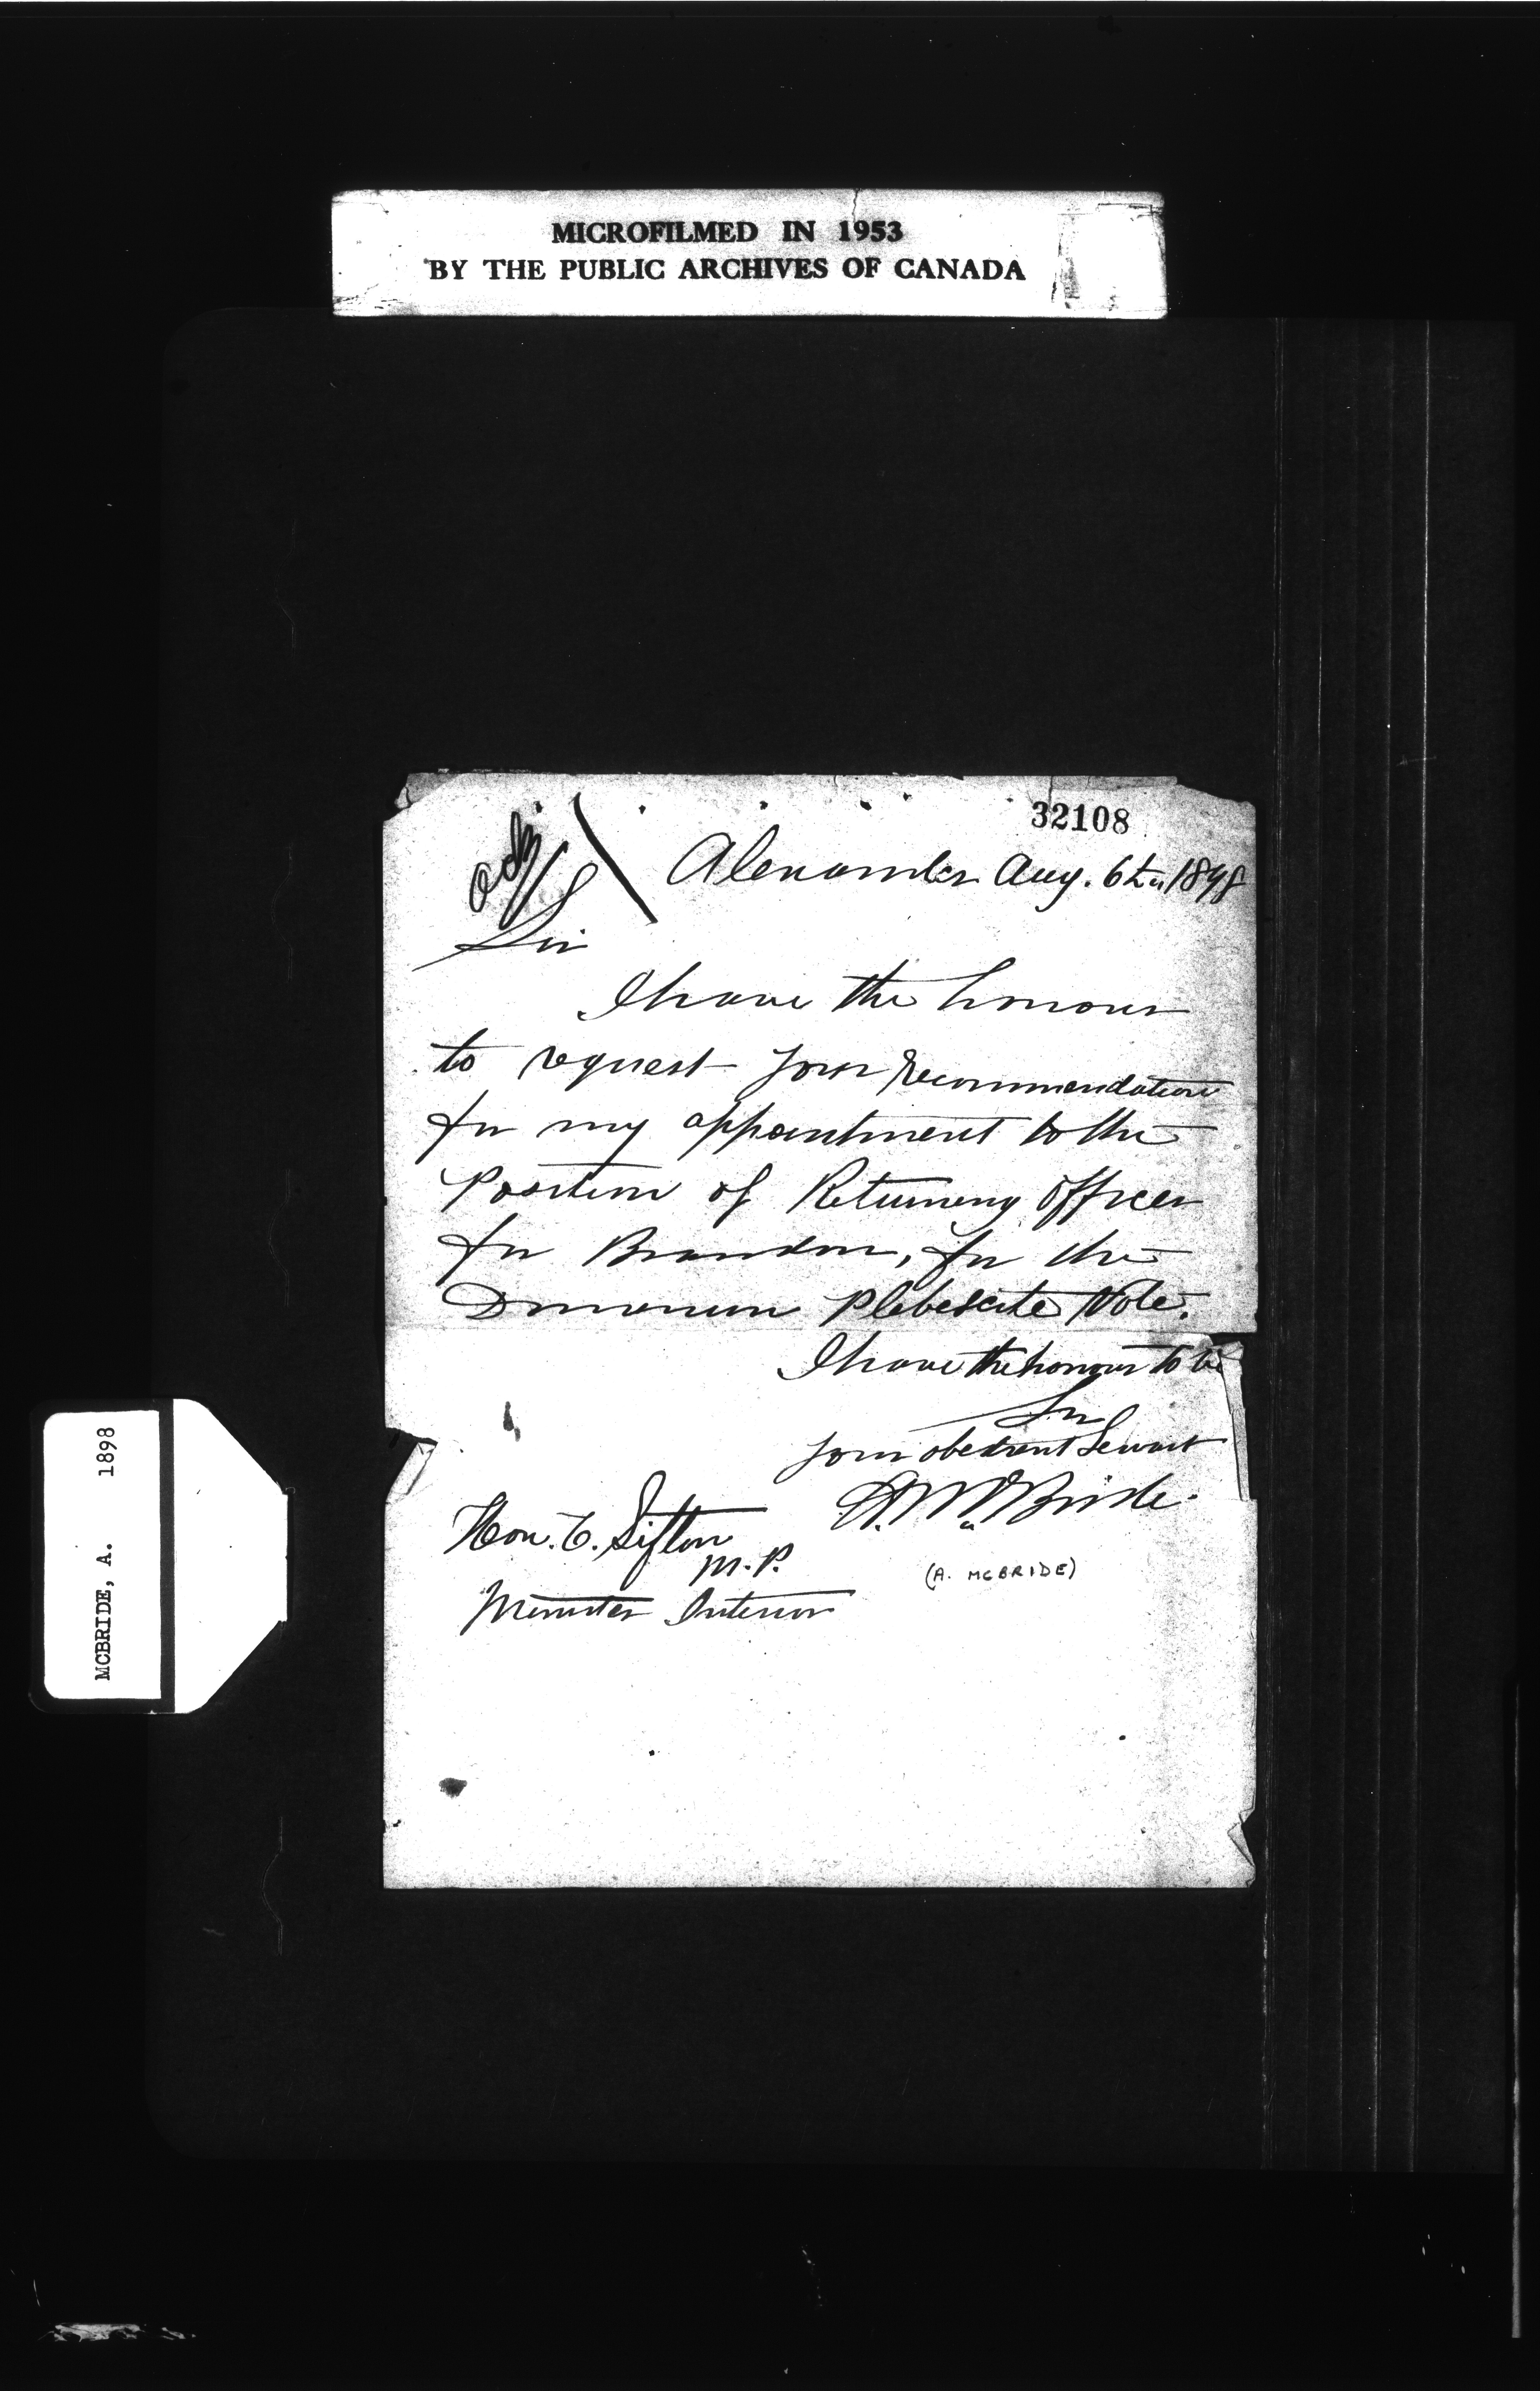 MICROFILMED IN 1953
BY THE PUBLIC ARCHIVES OF CANADA
32108
Alexander Aug. 6th 1898
Sir
I have the honour
to request your recommendation
for my appointment to the
Position of Returning Officer
for Brandon, for the
Dominion Plebescite Vote.
I have the honour to be
Sir
your obedient Servant
A. McBride.
Hon. C. Sifton
M.P.
Minister Interior
(A. MCBRIDE)
MCBRIDE, A. 1898